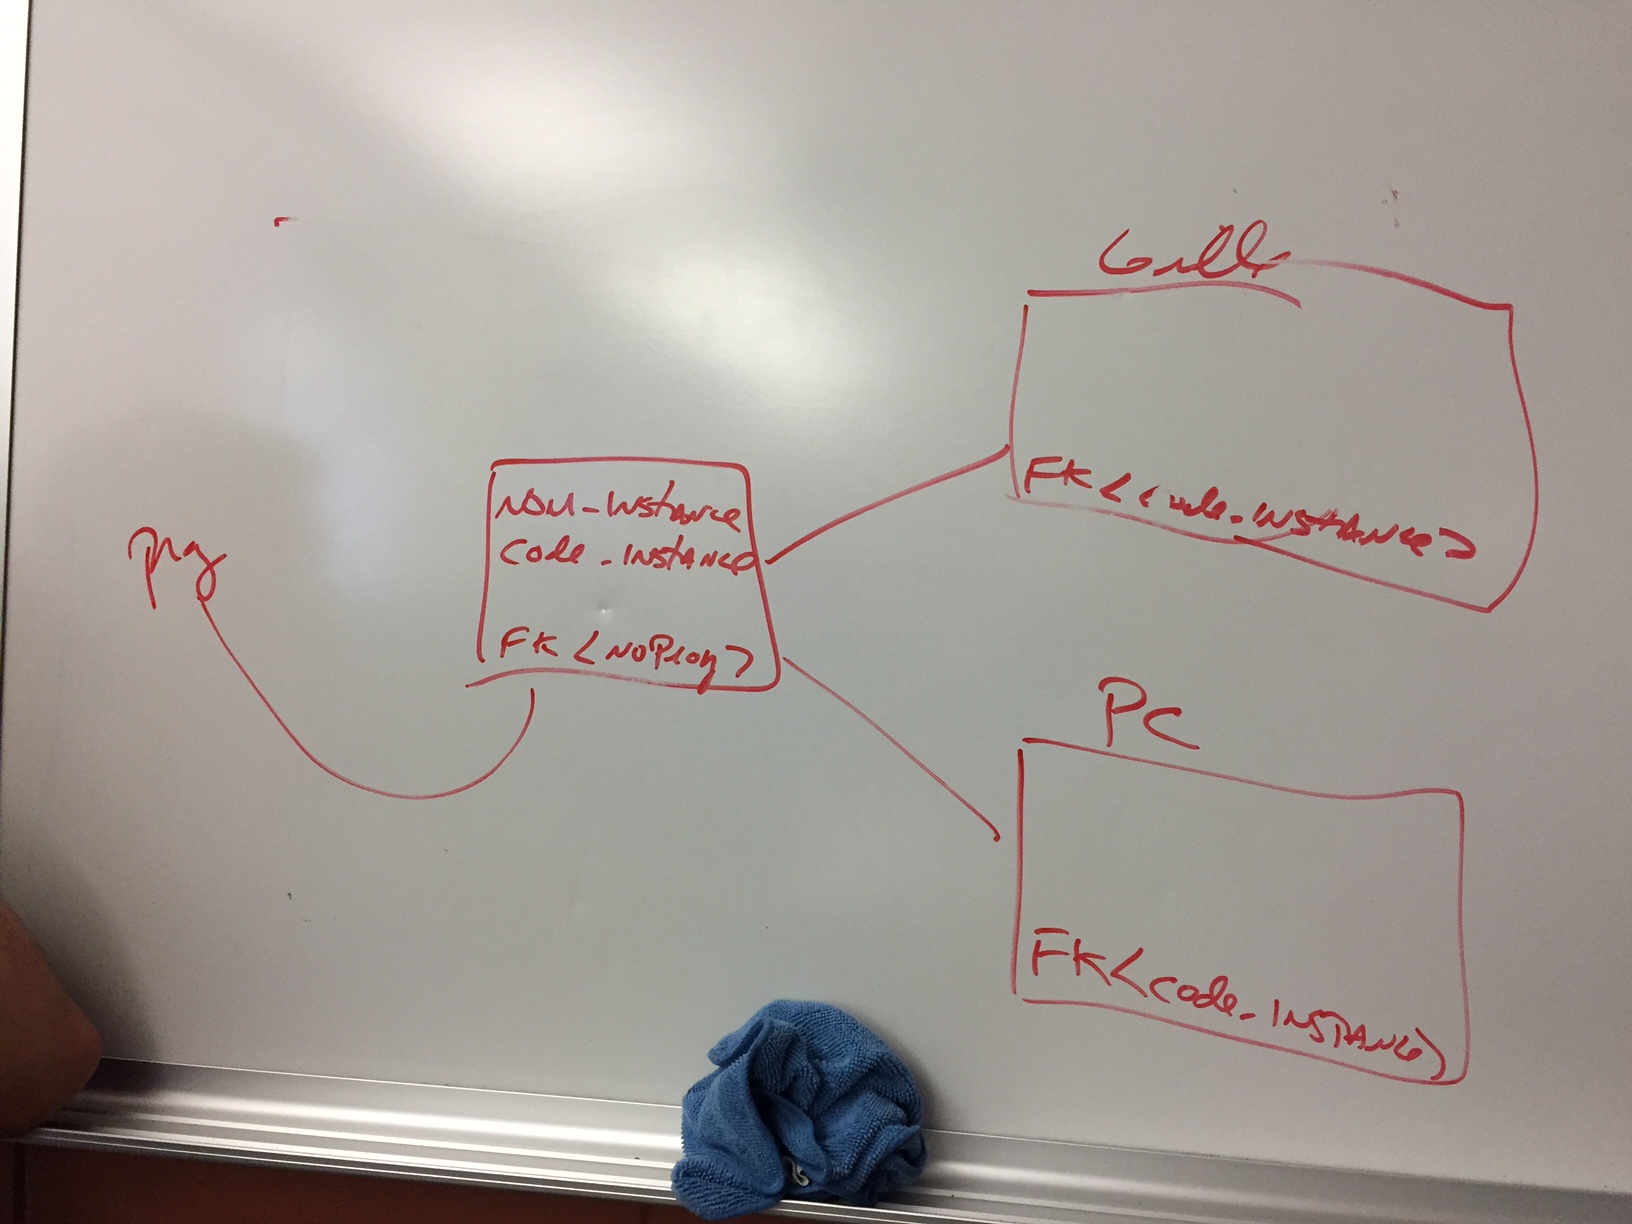 NOM_INSTANCE
Code_INSTANCE
FK <NOPROG>
Grille
FK <code_INSTANCE>
PC
FK <code_INSTANCE>